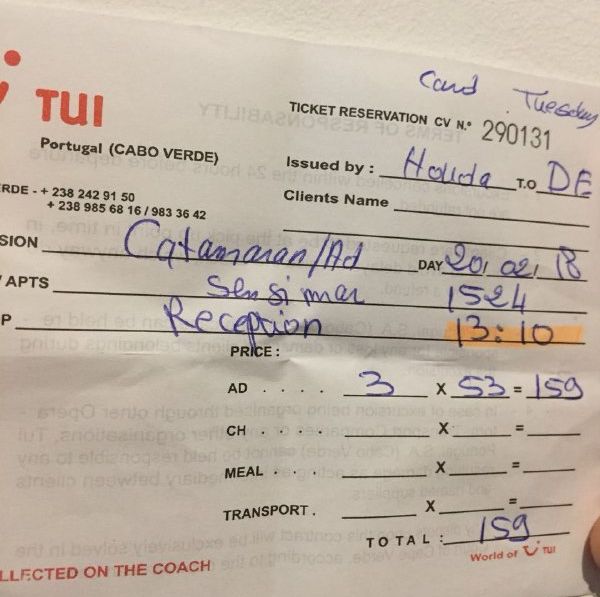 Card Tuesday
TUI
TICKET RESERVATION CV N.º 290131
Portugal (CABO VERDE)
Issued by : Houda T.O DE
RDE - + 238 242 91 50
+ 238 985 68 16 / 983 36 42
Clients Name
SION Catamaran/Ad DAY 20, 02, 18
/ APTS Sensimar 1524
P Reception 13:10
PRICE :
AD . . . . 3 X 53 = 159
CH . . . . X =
MEAL . . . X =
TRANSPORT . X =
TOTAL : 159
World of TUI
LLECTED ON THE COACH